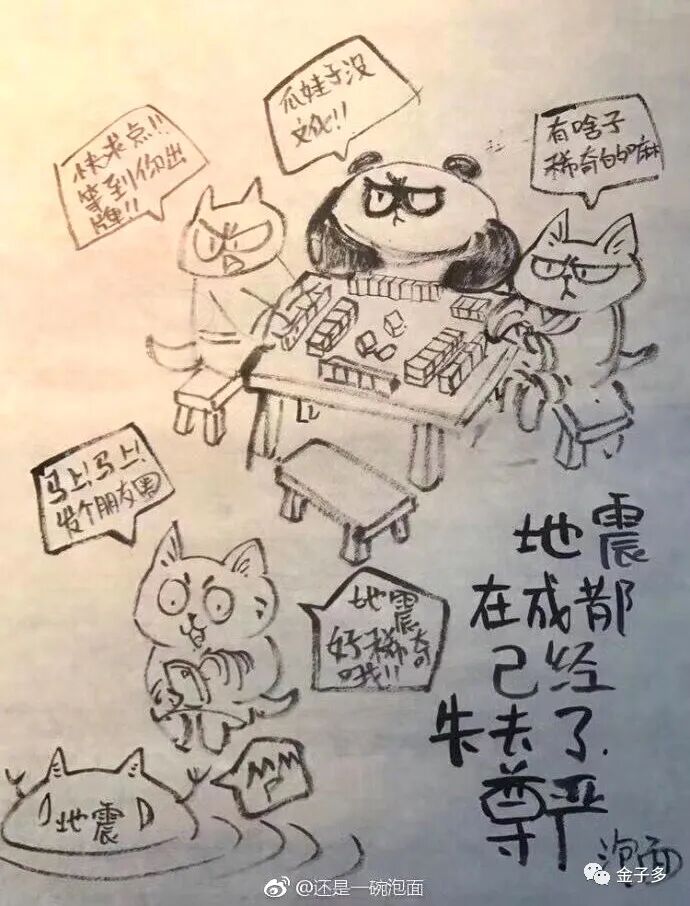 瓜娃子没
文化!!
快求点!!!
等到你出
牌!!
有啥子
稀奇的嘛
马上!马上!
发个朋友圈
地震
好稀奇
哦!!
地震
在成都
已经
失去了.
尊严
泡面
地震
@还是一碗泡面
金子多